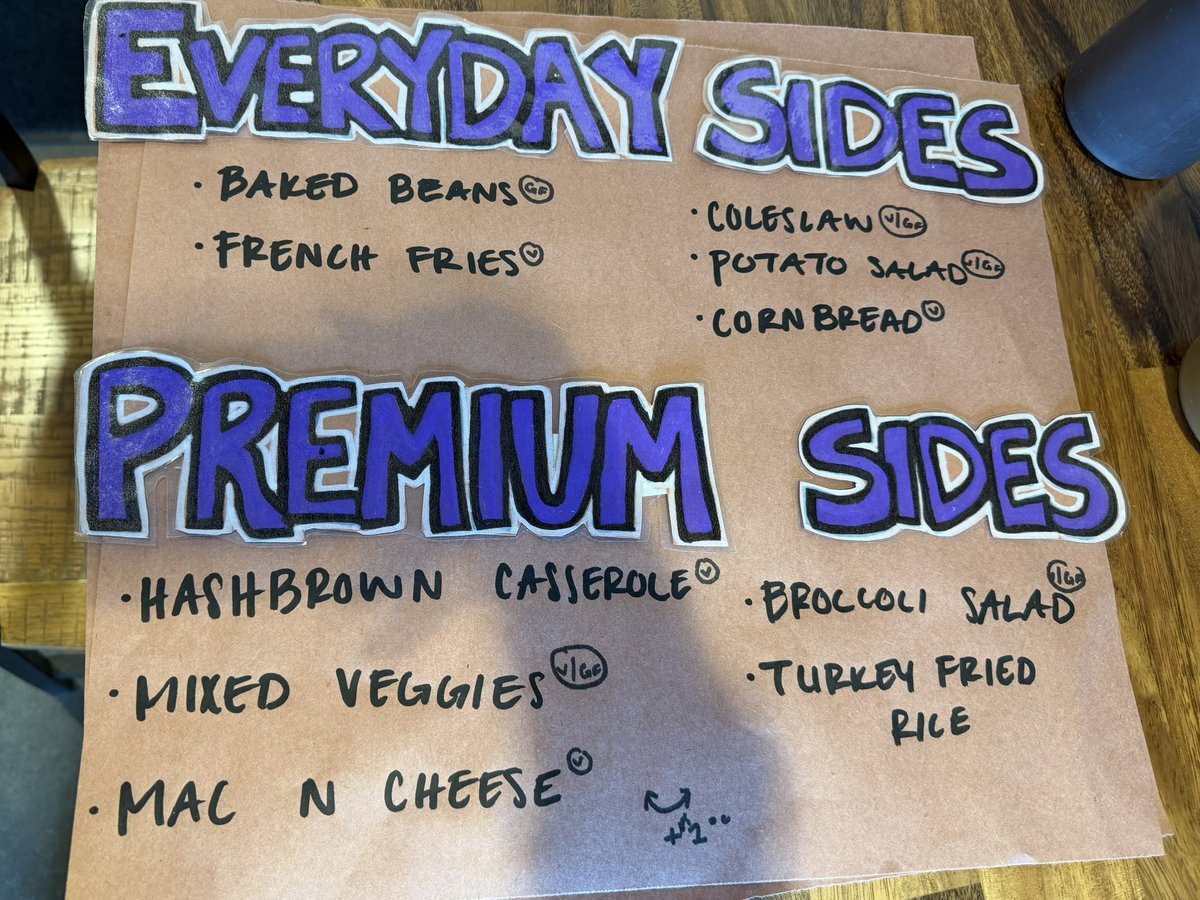 EVERYDAY SIDES
• BAKED BEANS GF
• FRENCH FRIES V
• COLESLAW V|GF
• POTATO SALAD V|GF
• CORNBREAD V
PREMIUM SIDES
• HASHBROWN CASSEROLE V
• MIXED VEGGIES V|GF
• MAC N CHEESE V
• BROCCOLI SALAD V|GF
• TURKEY FRIED
RICE
+$1.00